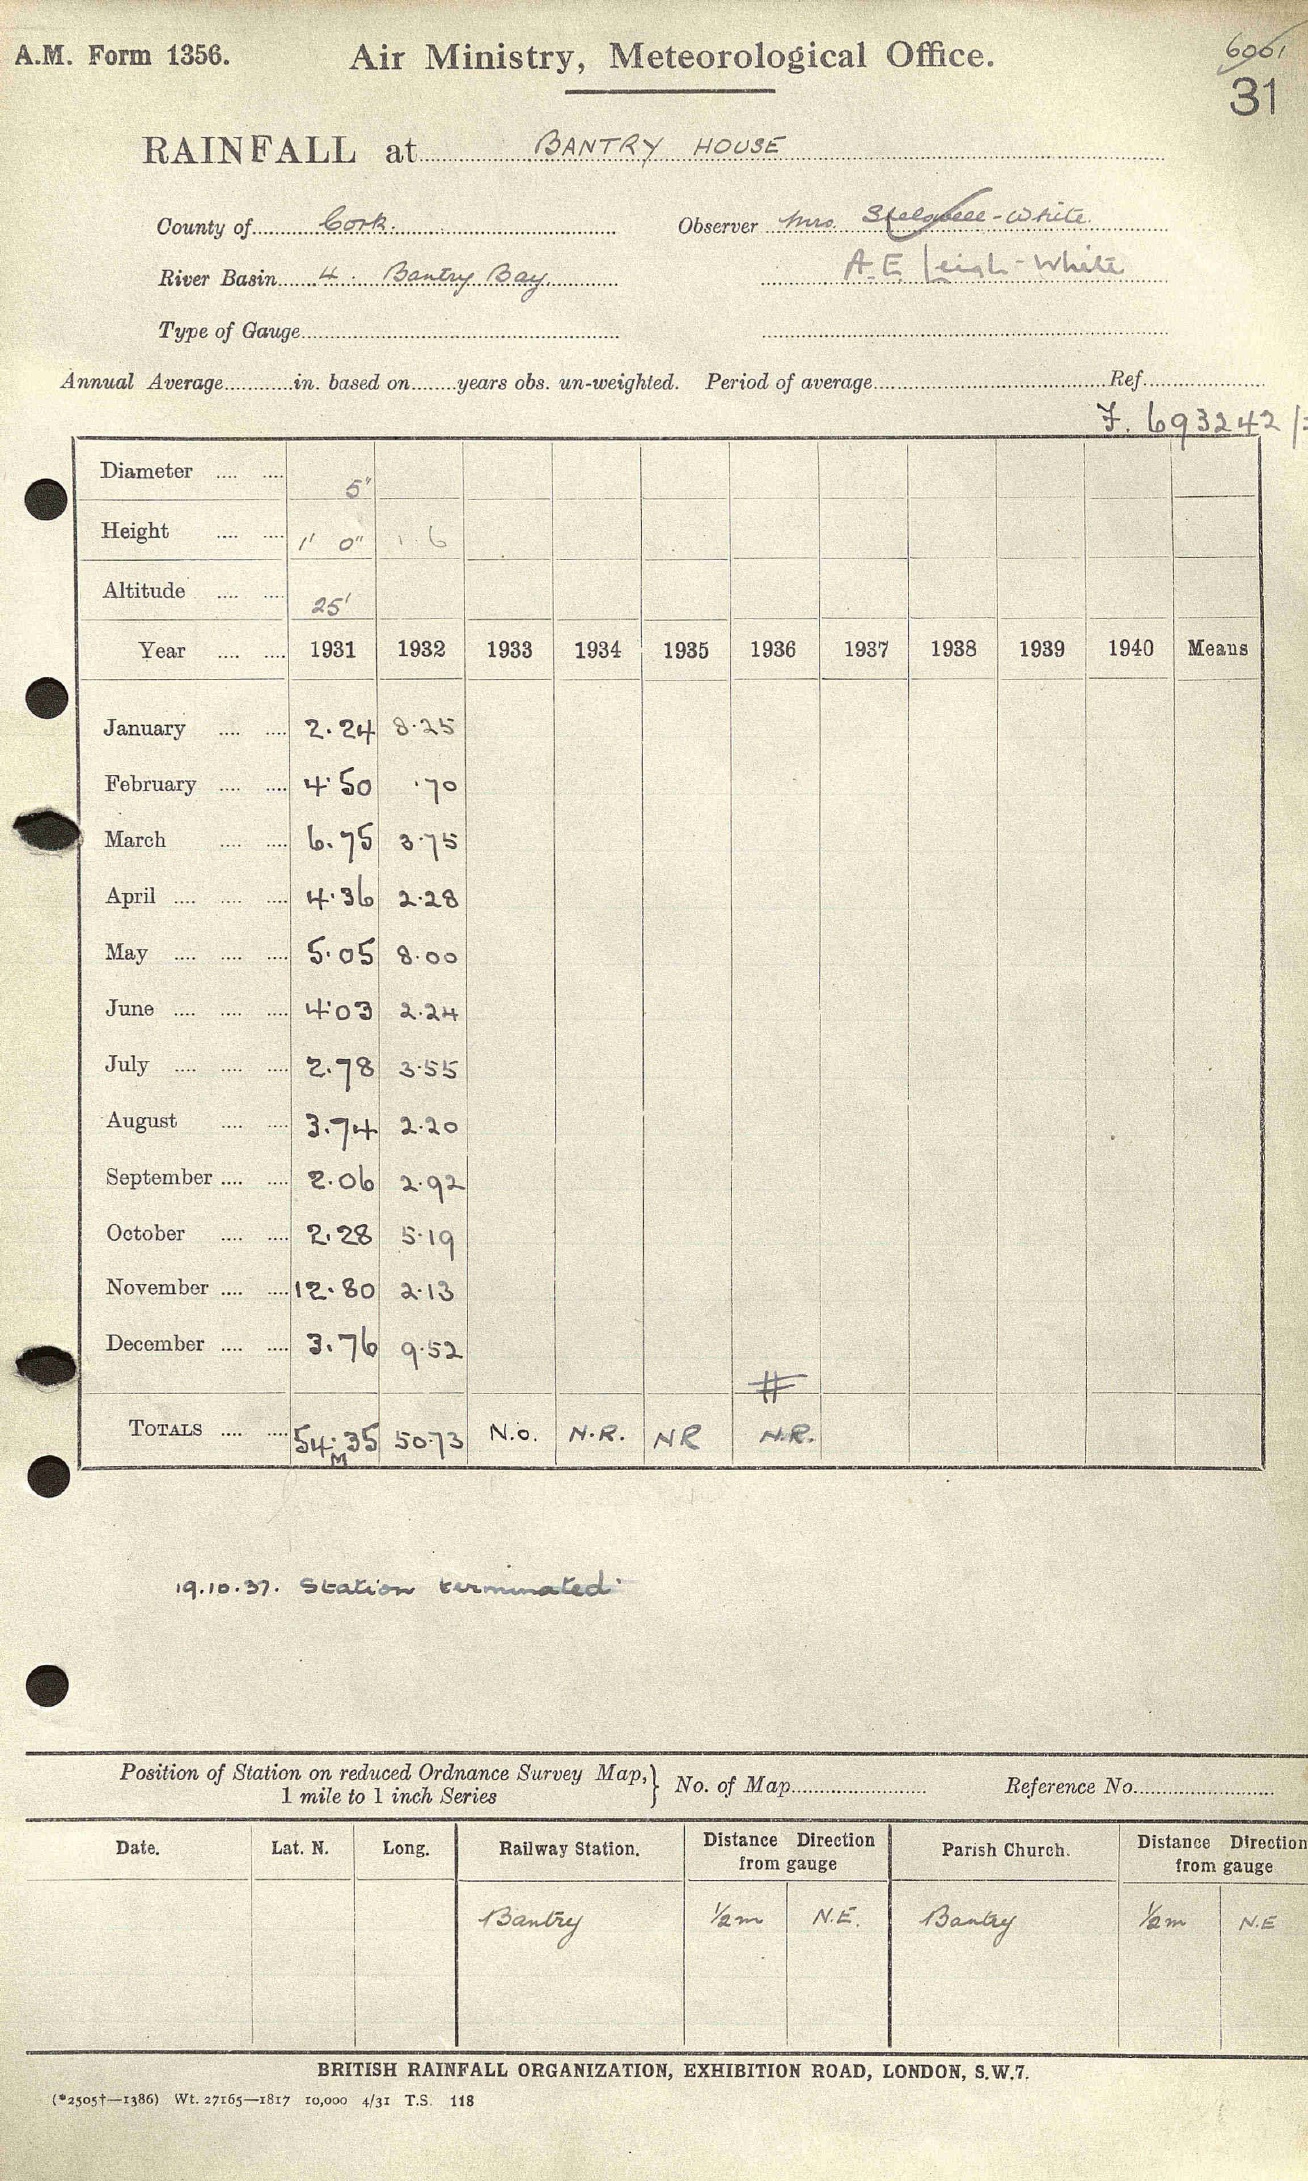 A.M. Form 1356. Air Ministry, Meteorological Office. 6001
31
RAINFALL at BANTRY HOUSE
County of Cork. Observer Mrs. -White.
River Basin 4. Bantry Bay. A.E. Leigh-White
Type of Gauge
Annual Average in. based on years obs. un-weighted. Period of average Ref.
693242
Diameter 5"
Height 1' 0" 1 6
Altitude 25'
Year 1931 1932 1933 1934 1935 1936 1937 1938 1939 1940 Means
January 2.24 8.25
February 4.50 .70
March 6.75 3.75
April 4.36 2.28
May 5.05 8.00
June 4.03 2.24
July 2.78 3.55
August 3.74 2.20
September 2.06 2.92
October 2.28 5.19
November 12.80 2.13
December 3.76 9.52
#
TOTALS 54.35 50.73 N.O. N.R. NR N.R.
M
19.10.37. Station terminated.
Position of Station on reduced Ordnance Survey Map, 1 mile to 1 inch Series } No. of Map Reference No.
Date. Lat. N. Long. Railway Station. Distance Direction from gauge Parish Church. Distance Direction from gauge
Bantry ½m N.E. Bantry ½m N.E
BRITISH RAINFALL ORGANIZATION, EXHIBITION ROAD, LONDON, S.W.7.
(*2505†—1386) Wt. 27165—1817 10,000 4/31 T.S. 118